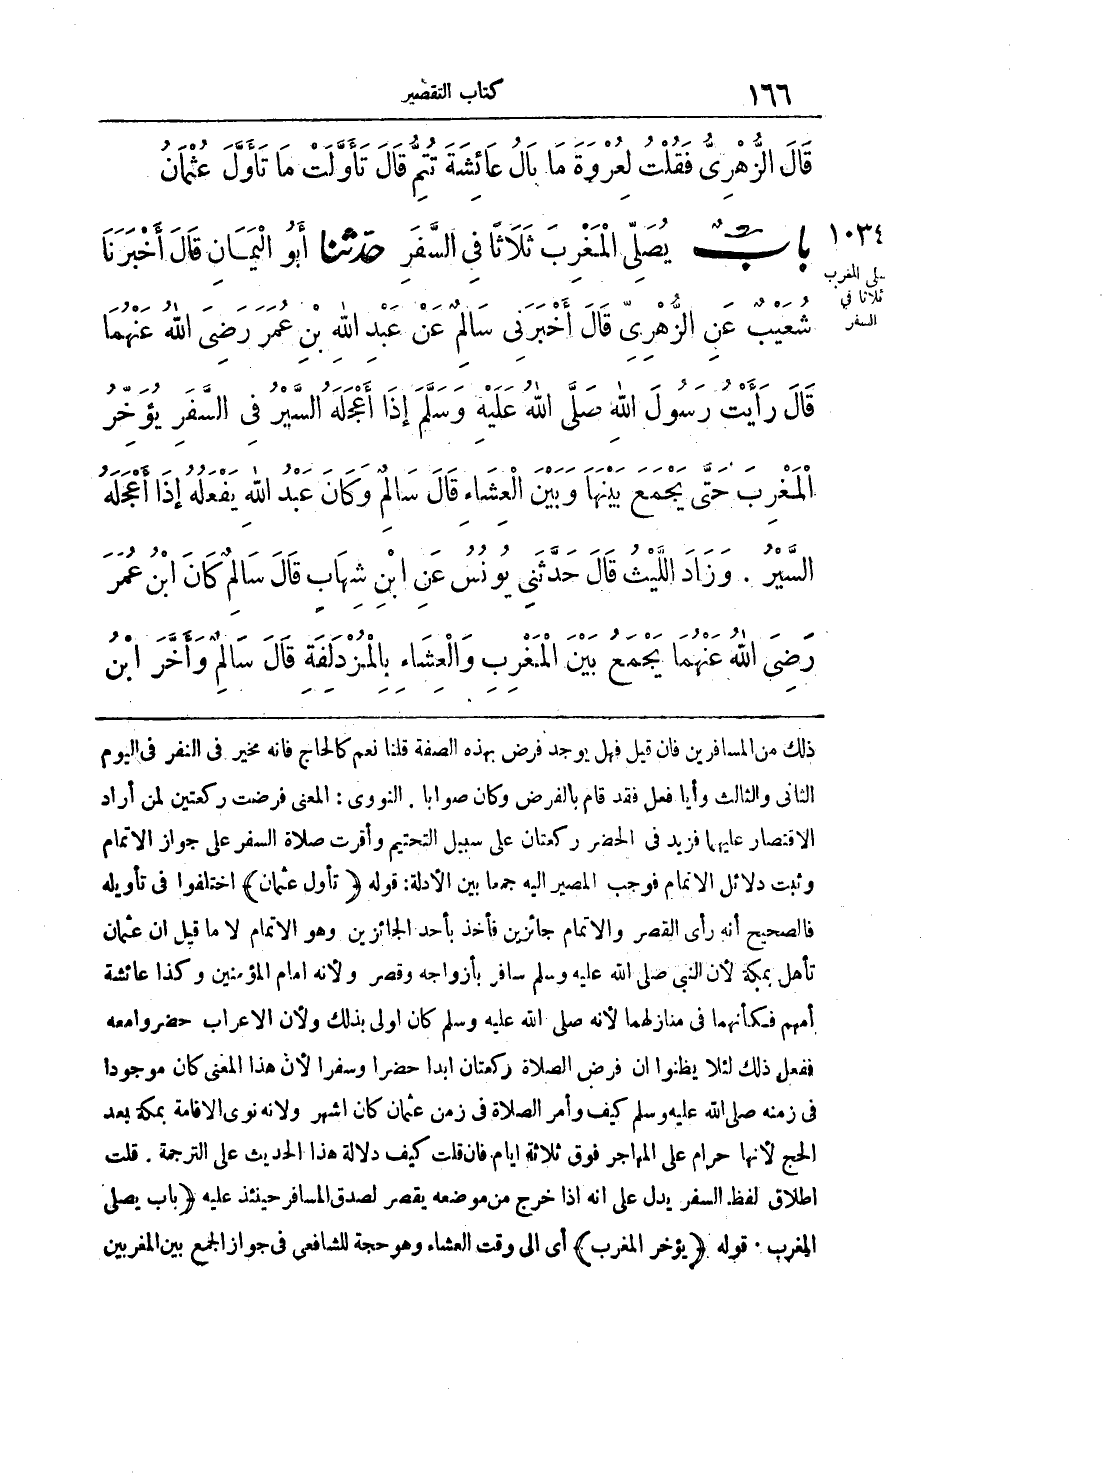 ١٦٦
كتاب التقصير
قَالَ الزُّهْرِىُّ فَقُلْتُ لِعُرْوَةَ مَا بَالُ عَائِشَةَ تُتِمُّ قَالَ تَأَوَّلَتْ مَا تَأَوَّلَ عُثْمَانُ
١٠٣٤
صلى المغرب
ثلاثا في
السفر
بابٌ يُصَلِّى الْمَغْرِبَ ثَلَاثًا فِى السَّفَرِ حَدَّثَنَا أَبُو الْيَمَانِ قَالَ أَخْبَرَنَا
شُعَيْبٌ عَنِ الزُّهْرِىِّ قَالَ أَخْبَرَنِى سَالِمٌ عَنْ عَبْدِ اللهِ بْنِ عُمَرَ رَضِىَ اللهُ عَنْهُمَا
قَالَ رَأَيْتُ رَسُولَ اللهِ صَلَّى اللهُ عَلَيْهِ وَسَلَّمَ إِذَا أَعْجَلَهُ السَّيْرُ فِى السَّفَرِ يُؤَخِّرُ
الْمَغْرِبَ حَتَّى يَجْمَعَ بَيْنَهَا وَبَيْنَ الْعِشَاءِ قَالَ سَالِمٌ وَكَانَ عَبْدُ اللهِ يَفْعَلُهُ إِذَا أَعْجَلَهُ
السَّيْرُ . وَزَادَ اللَّيْثُ قَالَ حَدَّثَنِى يُونُسُ عَنِ ابْنِ شِهَابٍ قَالَ سَالِمٌ كَانَ ابْنُ عُمَرَ
رَضِىَ اللهُ عَنْهُمَا يَجْمَعُ بَيْنَ الْمَغْرِبِ وَالْعِشَاءِ بِالْمُزْدَلِفَةِ قَالَ سَالِمٌ وَأَخَّرَ ابْنُ
ذلك من المسافرين فان قيل فهل يوجد فرض بهذه الصفة قلنا نعم كالحاج فانه مخير فى النفر فى اليوم
الثانى والثالث وأيا فعل فقد قام بالفرض وكان صوابا . النووى : المعنى فرضت ركعتين لمن أراد
الاقتصار عليهما فزيد فى الحضر ركعتان على سبيل التحتيم وأقرت صلاة السفر على جواز الاتمام
وثبت دلائل الاتمام فوجب المصير اليه جمعا بين الأدلة: قوله ﴿تأول عثمان﴾ اختلفوا فى تأويله
فالصحيح أنه رأى القصر والاتمام جائزين فأخذ بأحد الجائزين وهو الاتمام لا ما قيل ان عثمان
تأهل بمكة لأن النبى صلى الله عليه وسلم سافر بأزواجه وقصر ولانه امام المؤمنين وكذا عائشة
أمهم فكأنهما فى منازلهما لأنه صلى الله عليه وسلم كان اولى بذلك ولأن الاعراب حضروا معه
ففعل ذلك لئلا يظنوا ان فرض الصلاة ركعتان ابدا حضرا وسفرا لأن هذا المعنى كان موجودا
فى زمنه صلى الله عليه وسلم كيف وأمر الصلاة فى زمن عثمان كان اشهر ولانه نوى الاقامة بمكة بعد
الحج لأنها حرام على المهاجر فوق ثلاثة ايام. فان قلت كيف دلالة هذا الحديث على الترجمة . قلت
اطلاق لفظ السفر يدل على انه اذا خرج من موضعه يقصر لصدق المسافر حينئذ عليه ﴿باب يصلى
المغرب . قوله ﴿يؤخر المغرب﴾ أى الى وقت العشاء وهو حجة للشافعى فى جواز الجمع بين المغربين